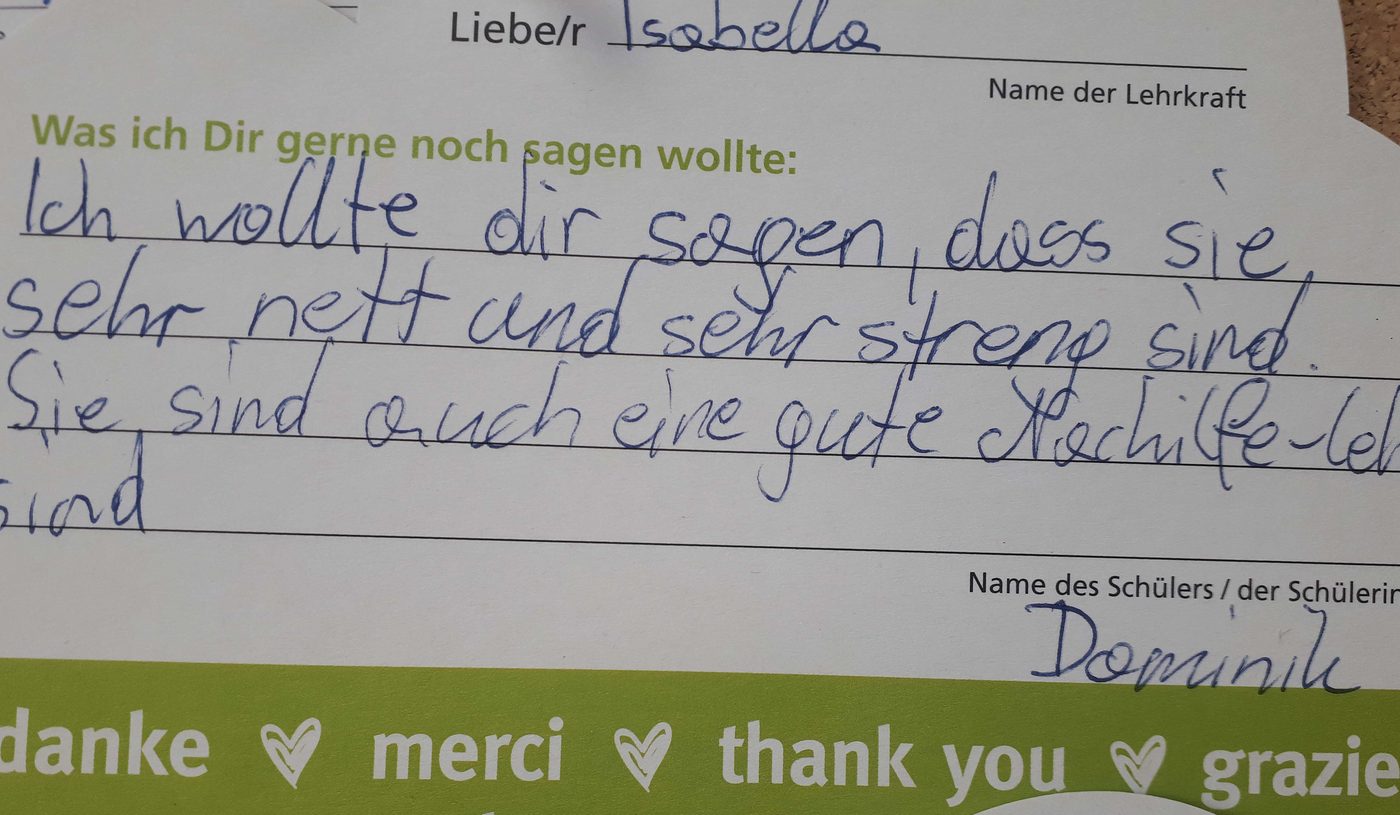 Liebe/r Isabella
Name der Lehrkraft
Was ich Dir gerne noch sagen wollte:
Ich wollte dir sagen, dass sie,
sehr nett und sehr streng sind.
Sie sind auch eine gute Nachilfe-leh
sind
Name des Schülers / der Schülerin
Dominik
danke merci thank you grazie